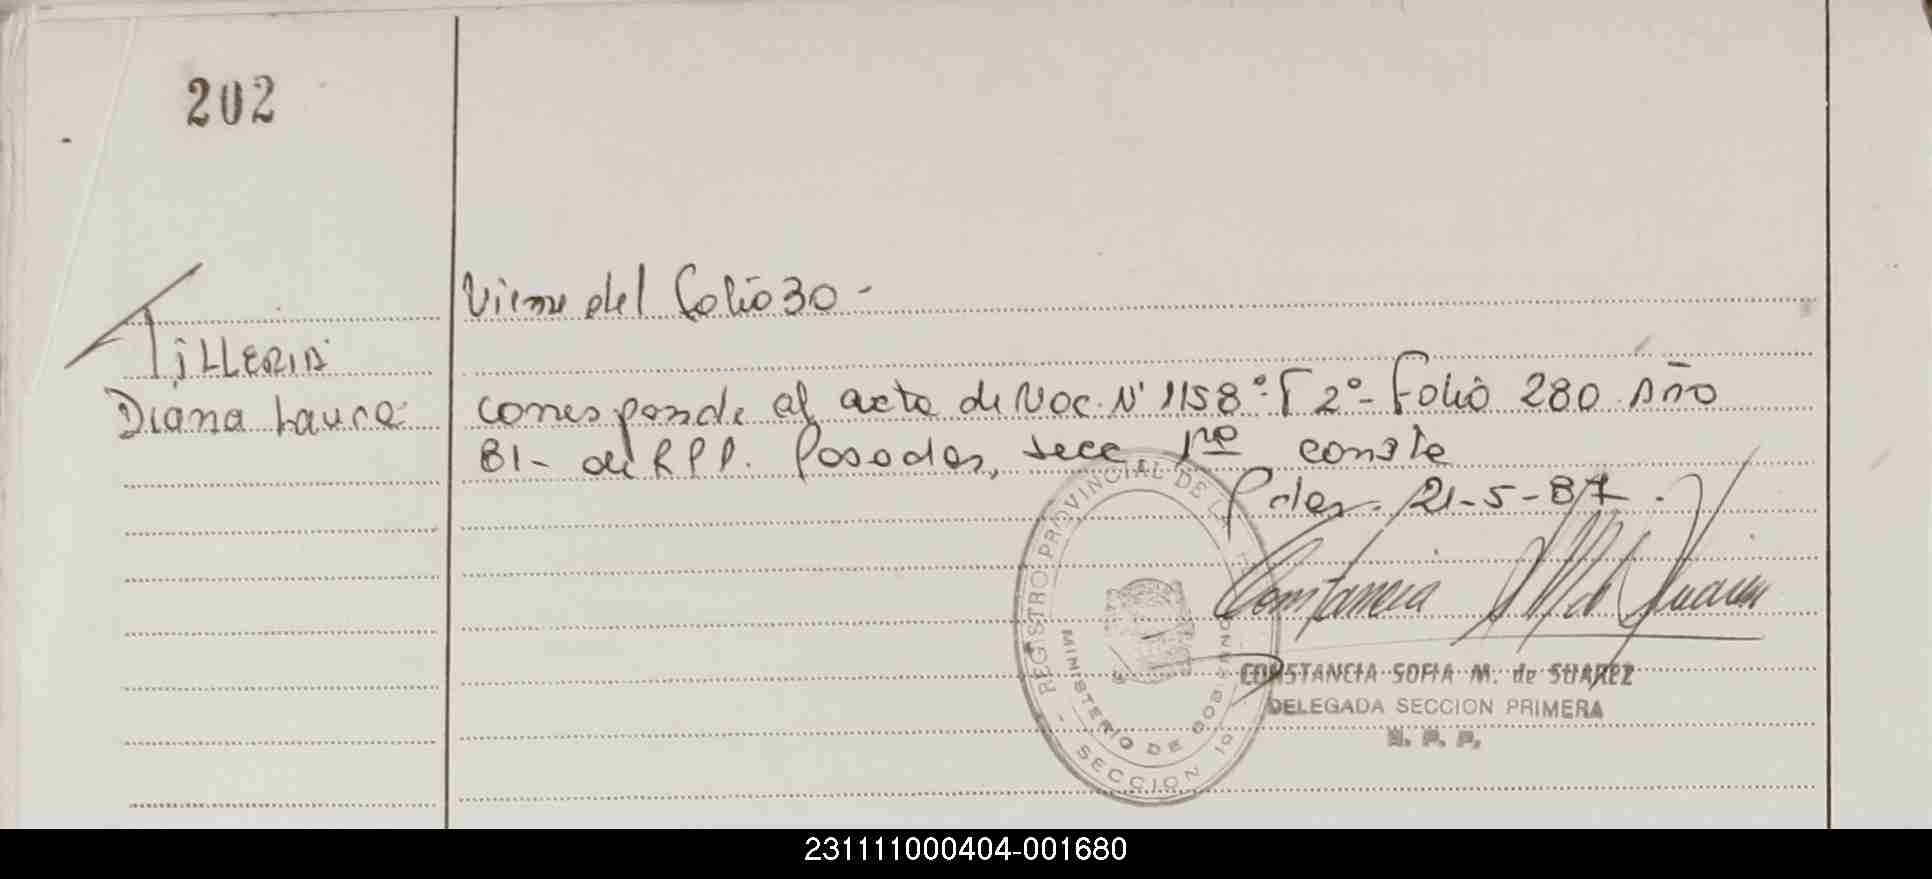 202
Viene del folio 30 -
TiLLERIA
Diana Laura
corresponde al acta de Nac. Nº 1158º - T 2º - Folio 280 Año
81 - del R P P. Posadas, secc 1ra conste
Pdas. 21-5-87.
REGISTRO PROVINCIAL DE LA
MINISTERIO DE GOBIERNO
SECCION 1º
CONSTANCIA SOFIA M. de SUAREZ
DELEGADA SECCION PRIMERA
R. P. P.
231111000404-001680